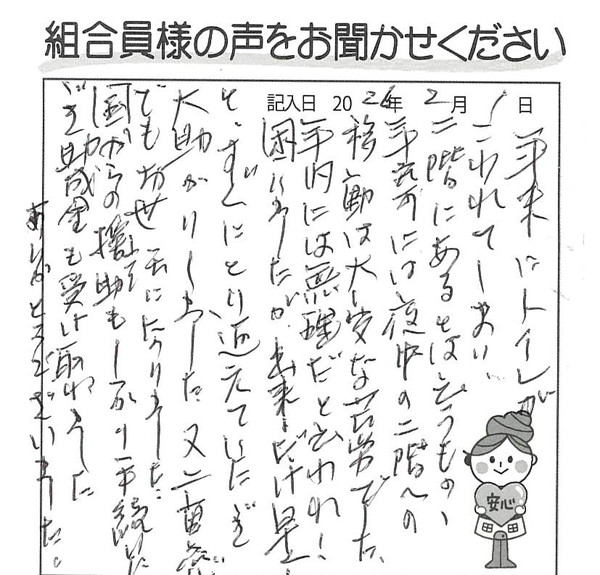 組合員様の声をお聞かせください
記入日 2026年2月1日
年末にトイレが
こわれてしまい
二階にあるとは云うものゝ
年寄には夜中の二階への
移動は大変な苦労でした
年内には無理だと云われ!
困りましたが出来るだけ早く
と、すぐにとり返えていただき
大助かりしました 又二重窓
でもお世話になりました
国からの援助もしっかり手続いただ
き助成金も受け取れました
ありがとうございました。
安心